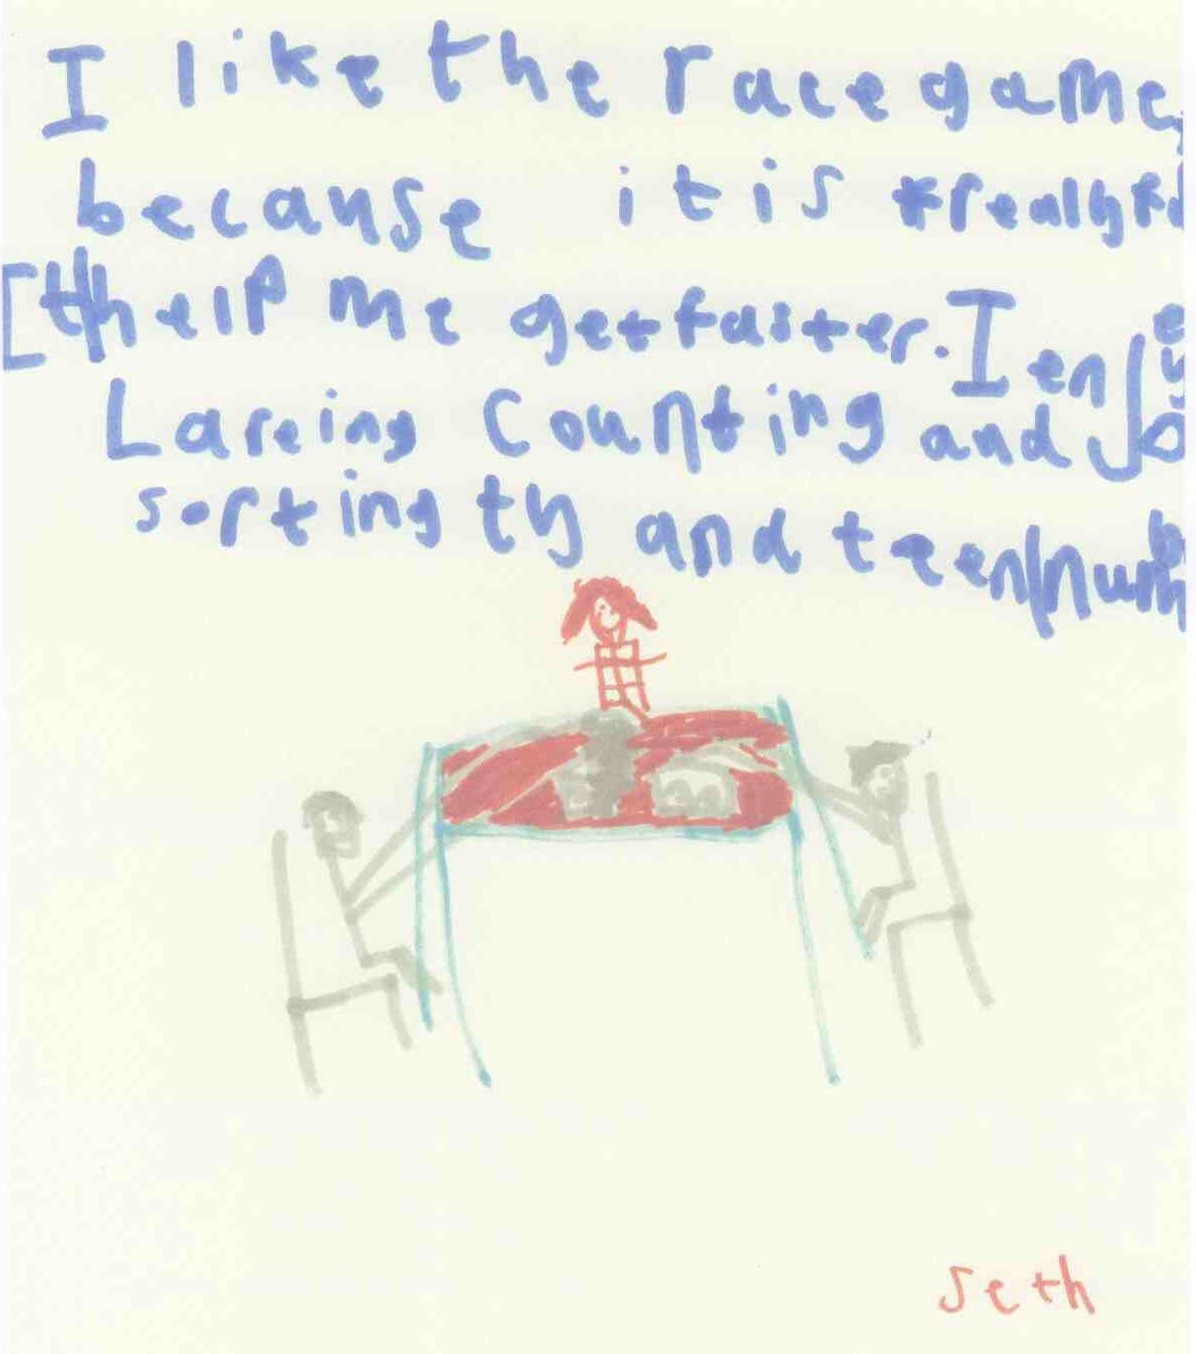 I like the race game
because it is really
help me get faster. I enjoy
Lareing counting and
sorting ty and teen num
Seth